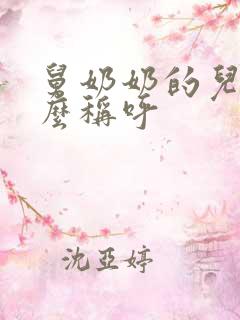 舅奶奶的兒
麼稱呼
沈亞婷